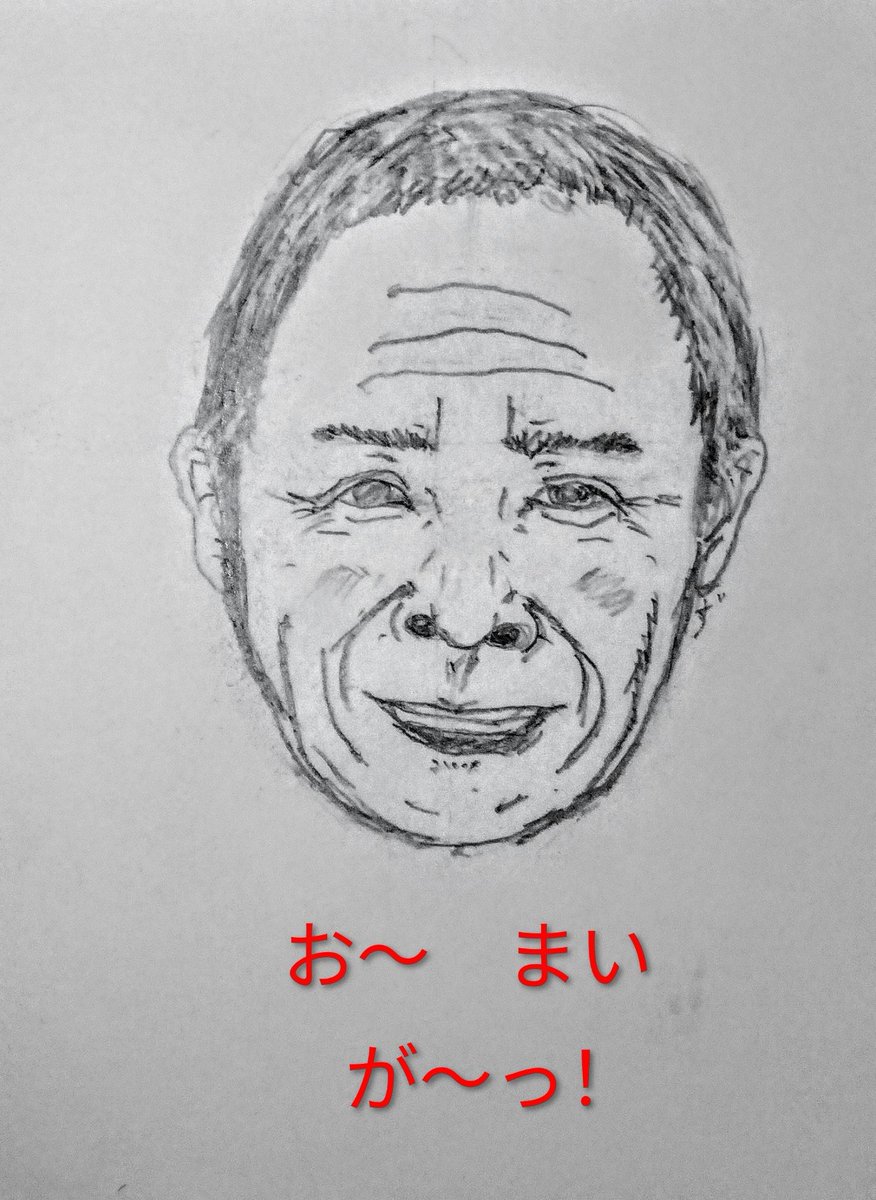 お〜　まい
が〜っ!